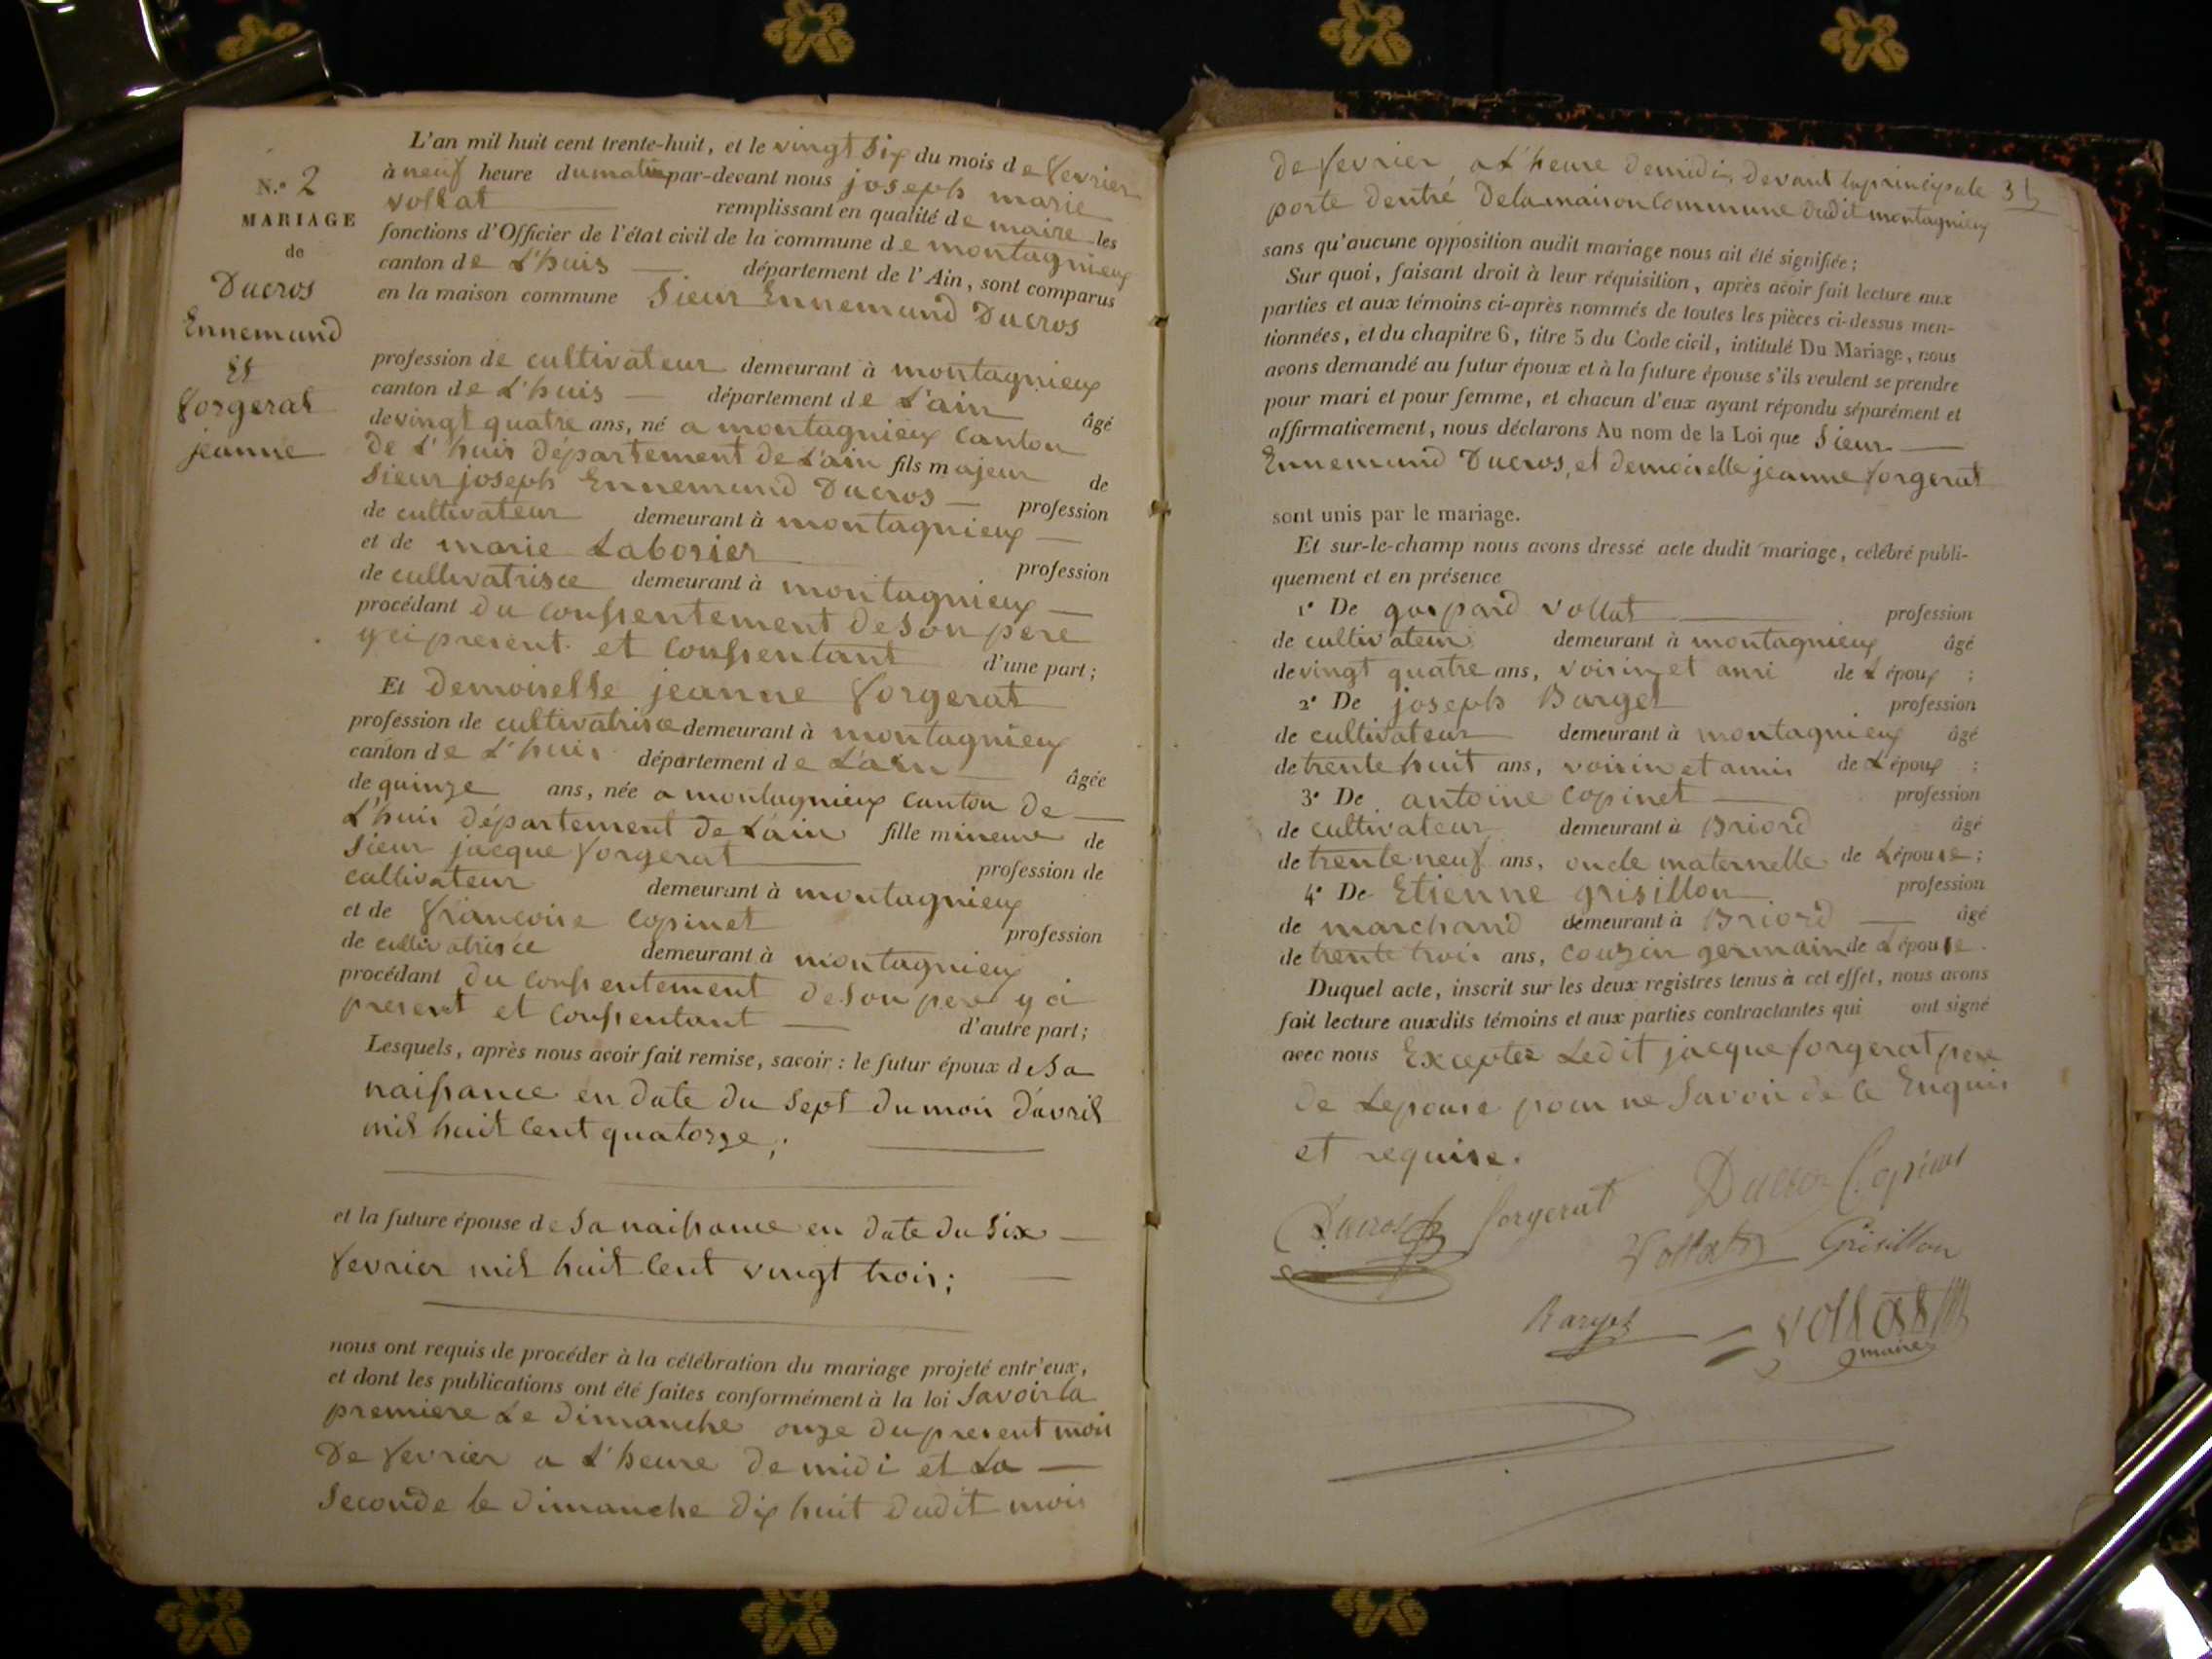 N.° 2
MARIAGE
de
Ducros
Ennemund
Et
forgerat
jeanne
L'an mil huit cent trente-huit, et le vingt six du mois de fevrier
à neuf heure du matin par-devant nous joseph marie
vollat remplissant en qualité de maire les
fonctions d'Officier de l'état civil de la commune de montagnieux
canton de L'huis département de l'Ain, sont comparus
en la maison commune Sieur Ennemund Ducros
profession de cultivateur demeurant à montagnieux
canton de L'huis département de L'ain âgé
de vingt quatre ans, né a montagnieux canton
de L'huis département de L'ain fils majeur de
Sieur joseph Ennemund Ducros profession
de cultivateur demeurant à montagnieux
et de marie Laborier profession
de cultivatrisce demeurant à montagnieux
procédant du consentement de son pere
y ci present et consentant d'une part;
Et demoiselle jeanne forgerat
profession de cultivatrisce demeurant à montagnieux
canton de L'huis département de L'ain âgée
de quinze ans, née a montagnieux canton de
L'huis département de L'ain fille mineure de
Sieur jacque forgerat profession de
cultivateur demeurant à montagnieux
et de francoise Copinet profession
de cultivatrisce demeurant à montagnieux
procédant du consentement de son pere y ci
present et consentant d'autre part;
Lesquels, après nous avoir fait remise, savoir : le futur époux de sa
naissance en date du sept du mois d'avril
mil huit cent quatorze;
et la future épouse de sa naissance en date du six
fevrier mil huit cent vingt trois;
nous ont requis de procéder à la célébration du mariage projeté entr'eux,
et dont les publications ont été faites conformément à la loi savoir la
premiere Le dimanche onze du present mois
De fevrier a L'heure de midi et La
Seconde le dimanche dix huit dudit mois
de fevrier a L'heure de midi, devant la principale 3
porte dentré de la maison Commune dudit montagnieux
sans qu'aucune opposition audit mariage nous ait été signifiée;
Sur quoi, faisant droit à leur réquisition, après avoir fait lecture aux
parties et aux témoins ci-après nommés de toutes les pièces ci-dessus men-
tionnées, et du chapitre 6, titre 5 du Code civil, intitulé Du Mariage, nous
avons demandé au futur époux et à la future épouse s'ils veulent se prendre
pour mari et pour femme, et chacun d'eux ayant répondu séparément et
affirmativement, nous déclarons Au nom de la Loi que Sieur
Ennemund Ducros, et demoiselle jeanne forgerat
sont unis par le mariage.
Et sur-le-champ nous avons dressé acte dudit mariage, célébré publi-
quement et en présence
1° De gaspard Vollat profession
de cultivateur demeurant à montagnieux âgé
de vingt quatre ans, voisin et ami de L'époux ;
2° De joseph Barget profession
de cultivateur demeurant à montagnieux âgé
de trente huit ans, voisin et amis de L'époux ;
3° De antoine Copinet profession
de cultivateur demeurant à Briord âgé
de trente neuf ans, oncle maternelle de L'épouse ;
4° De Etienne grisillon profession
de marchand demeurant à Briord âgé
de trente trois ans, couzin germain de L'épouse.
Duquel acte, inscrit sur les deux registres tenus à cet effet, nous avons
fait lecture auxdits témoins et aux parties contractantes qui ont signé
avec nous Exceptez Ledit jacque forgerat pere
de Lepouse pour ne Savoir de ce Enquis
et requise.
Ducros forgerat Ducros Copinet
Vollat Grisillon
Barget Vollat
maire